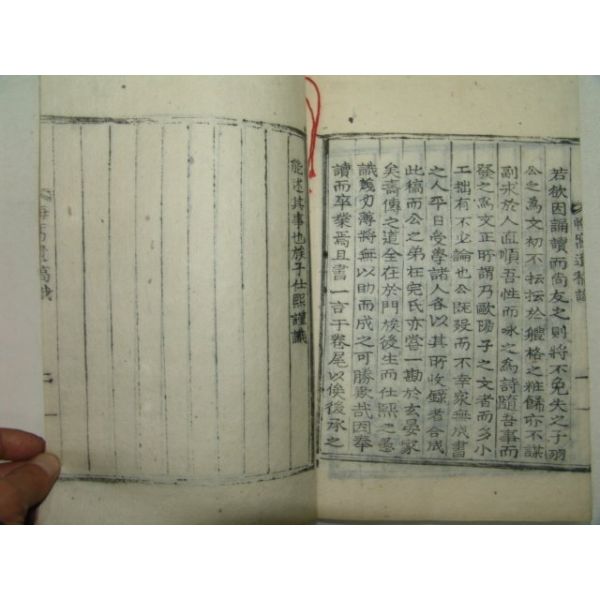 若欲因誦讀而尚友之則將不免失之子羽
公之爲文初不抎抎於軆格之粧餙亦不謀
副求於人直順吾性而咏之爲詩隨吾事而
發之爲文正所謂乃歐陽子之文者而多小
工拙有不必論也公旣殁而不幸家無成書
之人平日受學諸人各以其所收錄者合成
此稿而公之弟枉完氏亦嘗一勘於玄晏家
矣壽傳之道全在於門族後生而仕熙之愚
識魄力薄將無以助而成之可勝歎哉因奉
讀而卒業焉且書一言于卷尾以俟後承之
能述其事也族子仕熙謹識